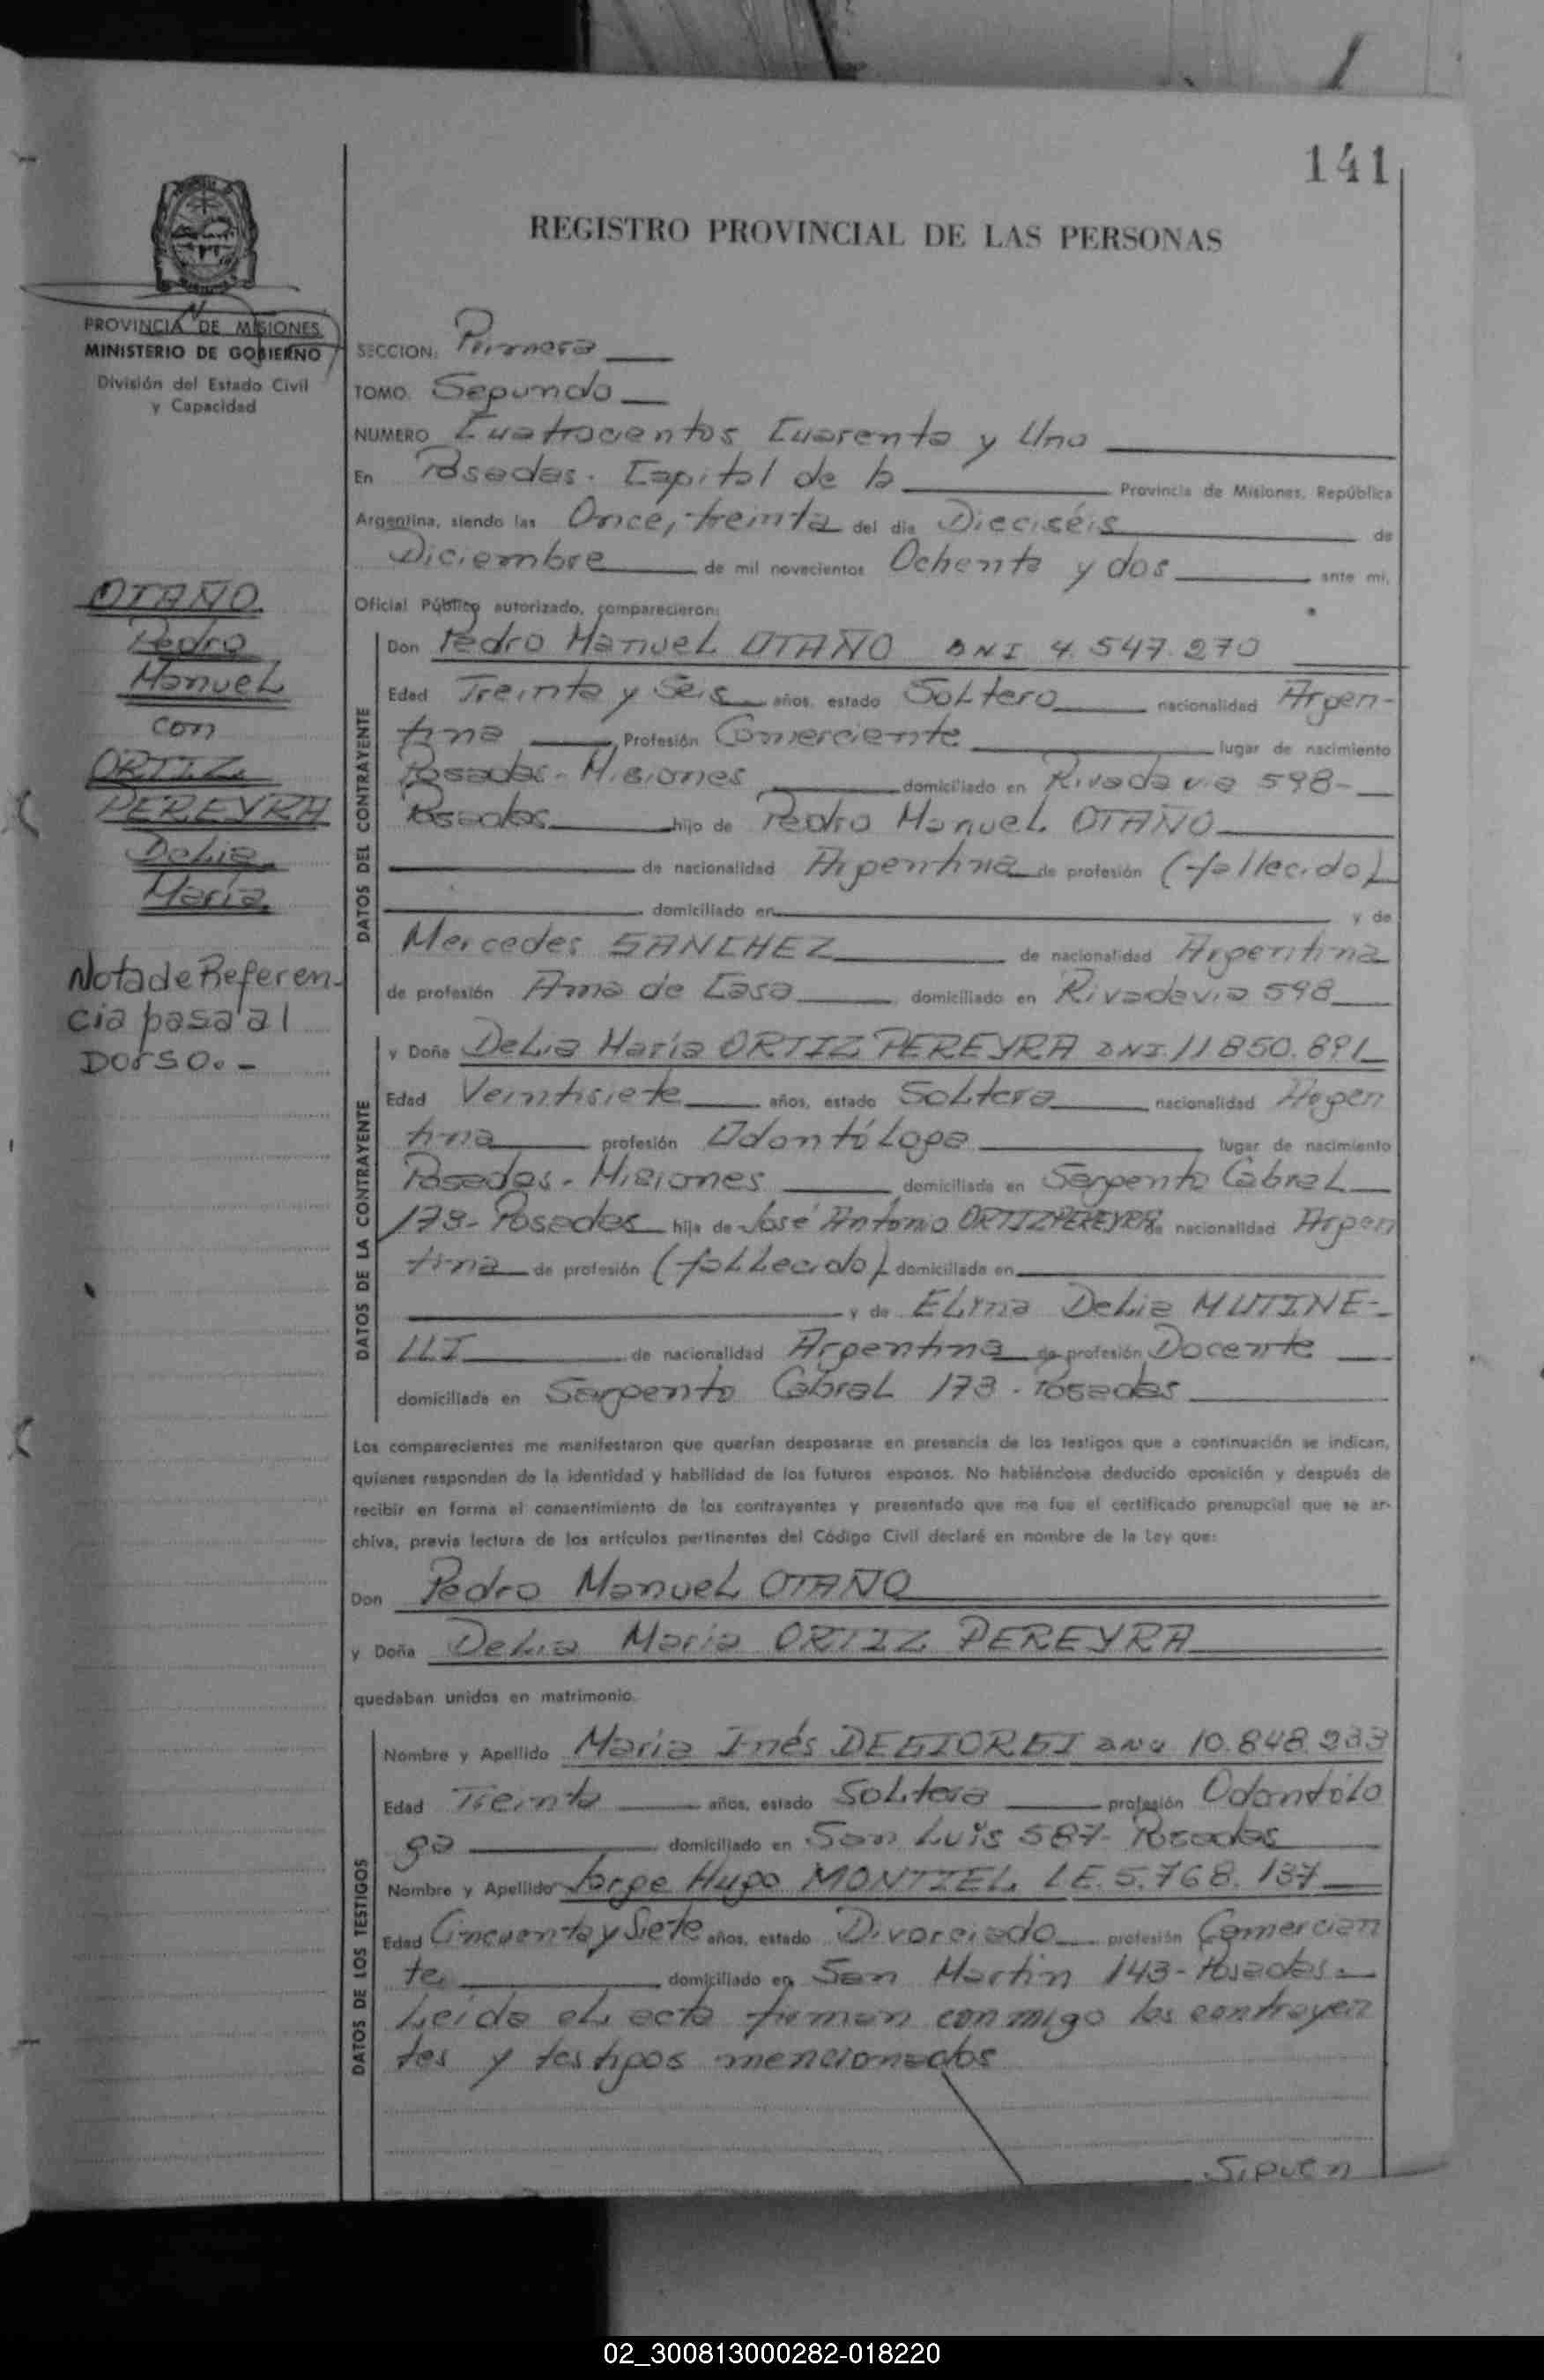 141
REGISTRO PROVINCIAL DE LAS PERSONAS
PROVINCIA DE MISIONES
MINISTERIO DE GOBIERNO
División del Estado Civil
y Capacidad
OTAÑO
Pedro
Manuel
con
ORTIZ
PEREYRA
Delia
María
Nota de Referen-
cia pasa al
Dorso.-
SECCION: Primera
TOMO Segundo
NUMERO Cuatrocentos Cuarenta y Uno
En Posadas. Capital de la Provincia de Misiones, República
Argentina, siendo las Once, treinta del día Dieciséis de
Diciembre de mil novecientos Ochenta y dos ante mi,
Oficial Público autorizado, comparecieron:
DATOS DEL CONTRAYENTE
Don Pedro Manuel OTAÑO DNI 4.547.270
Edad Treinta y Seis años, estado Soltero nacionalidad Argen-
tina Profesión Comerciante lugar de nacimiento
Posadas- Misiones domiciliado en Rivadavia 598-
Posadas hijo de Pedro Manuel OTAÑO
de nacionalidad Argentina de profesión (fallecido)
domiciliado en y de
Mercedes SANCHEZ de nacionalidad Argentina
de profesión Ama de Casa domiciliado en Rivadavia 598
DATOS DE LA CONTRAYENTE
y Doña Delia María ORTIZ PEREYRA DNI. 11850.891
Edad Veintisiete años, estado Soltera nacionalidad Argen
tina profesión Odontóloga lugar de nacimiento
Posadas- Misiones domiciliada en Sargento Cabral
173- Posadas hija de José Antonio ORTIZ PEREYRA de nacionalidad Argen
tina de profesión (fallecido) domiciliada en
y de Elma Delia MUTINE-
LLI de nacionalidad Argentina de profesión Docente
domiciliada en Sargento Cabral 173 - Posadas
Los comparecientes me manifestaron que querían desposarse en presencia de los testigos que a continuación se indican,
quienes responden de la identidad y habilidad de los futuros esposos. No habiéndose deducido oposición y después de
recibir en forma el consentimiento de los contrayentes y presentado que me fue el certificado prenupcial que se ar-
chiva, previa lectura de los artículos pertinentes del Código Civil declaré en nombre de la Ley que:
Don Pedro Manuel OTAÑO
y Doña Delia María ORTIZ PEREYRA
quedaban unidos en matrimonio.
DATOS DE LOS TESTIGOS
Nombre y Apellido María Inés DEGIORGI 10.848.233
Edad Treinta años, estado Soltera profesión Odontólo
ga domiciliado en San Luis 587- Posadas
Nombre y Apellido Jorge Hugo MONTIEL L.E. 5.768.137
Edad Cincuenta y Siete años, estado Divorciado profesión Comercian
te domiciliado en San Martin 143- Posadas.
Leída el acta firman conmigo los contrayen
tes y testigos mencionados
Siguen
02_300813000282-018220